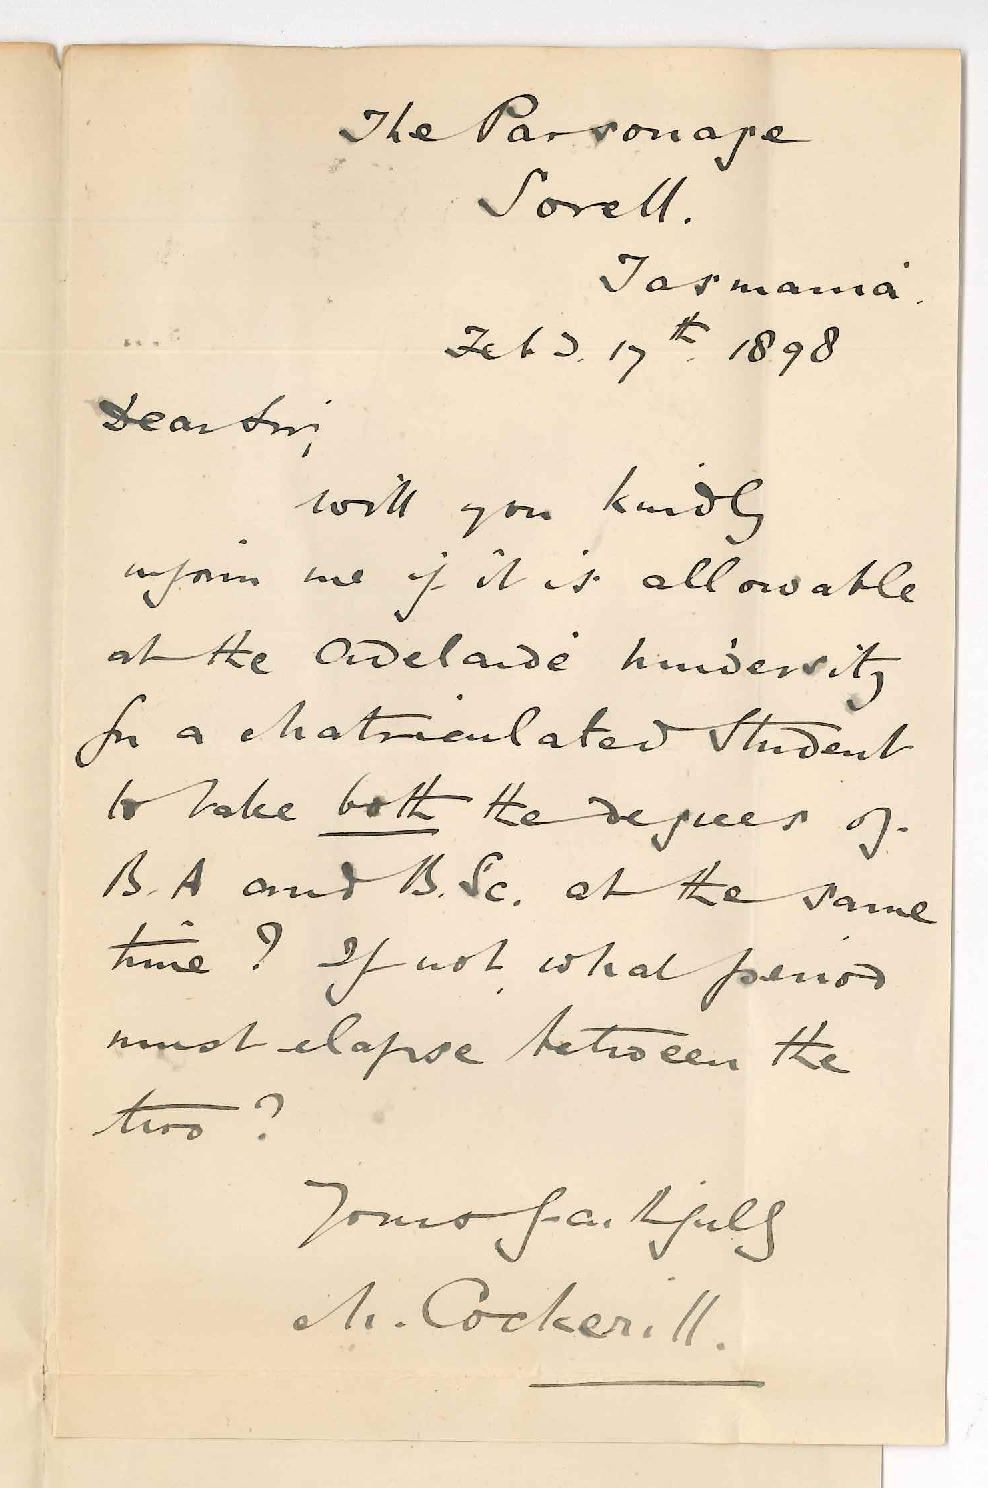 The Parsonage
Sorell.
Tasmania.
Feb. 17th. 1898
Dear Sir,
will you kindly
inform me if it is allowable
at the Adelaide University
for a Matriculated Student
to take both the degrees of
B.A and B.Sc. at the same
time? If not, what period
must elapse between the
two?
Yours faithfully
M. Cockerill.